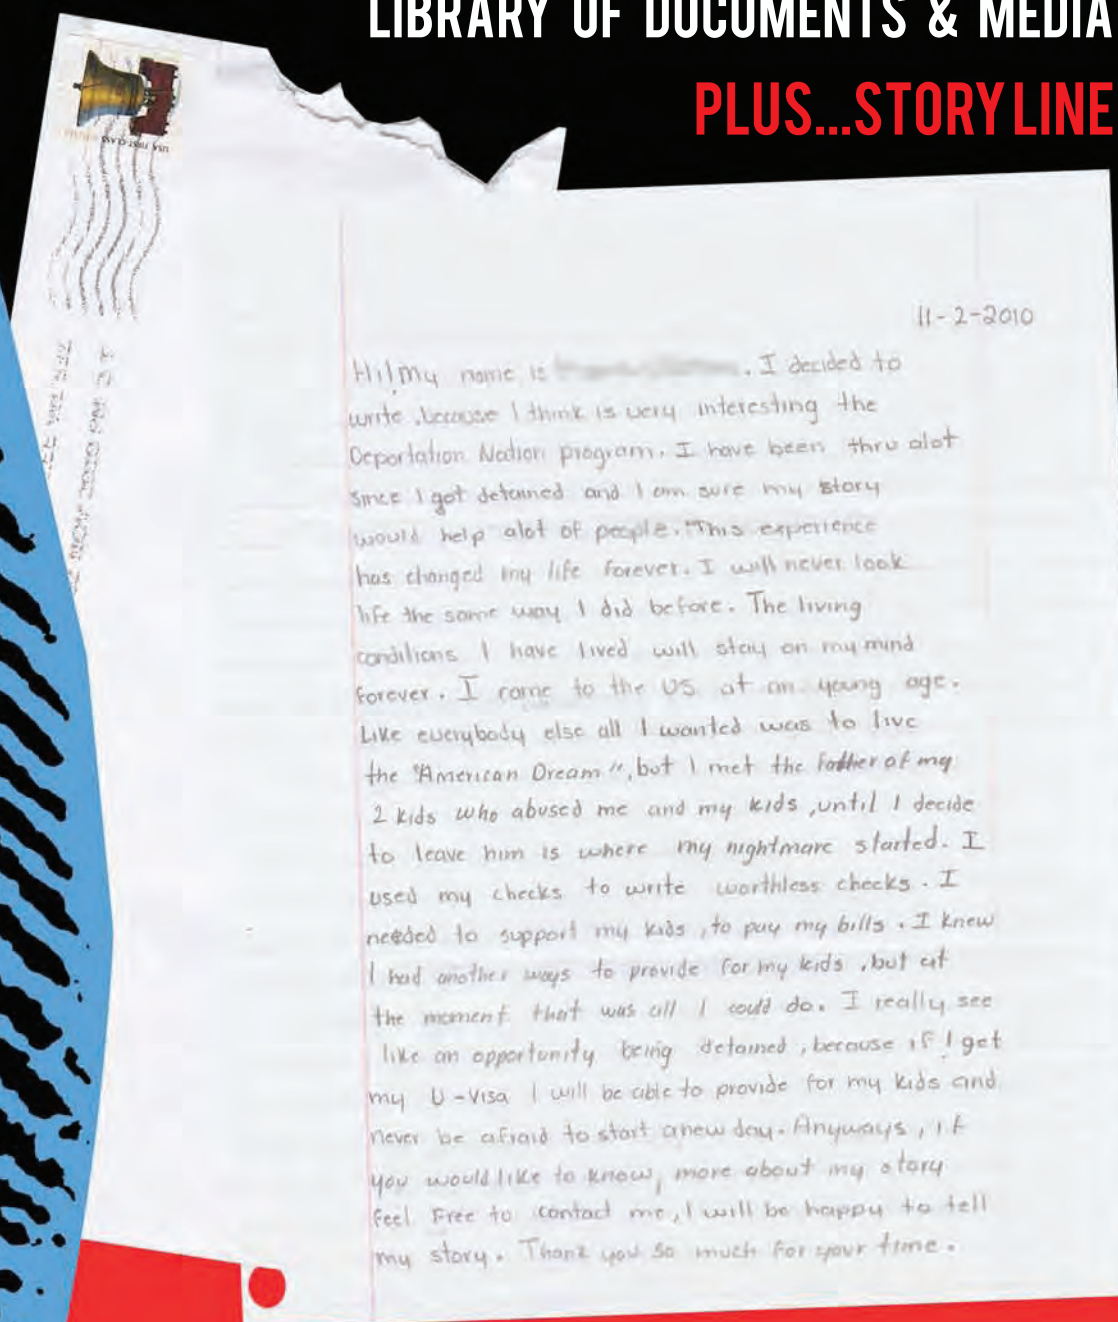 LIBRARY OF DOCUMENTS & MEDIA
PLUS...STORYLINE
USA FIRST-CLASS
11-2-2010
Hi! My name is . I decided to
write, because I think is very interesting the
Deportation Nation program. I have been thru alot
since I got detained and I am sure my story
would help alot of people. This experience
has changed my life forever. I will never look
life the same way I did before. The living
conditions I have lived will stay on my mind
forever. I came to the US at an young age.
Like everybody else all I wanted was to live
the "American Dream", but I met the father of my
2 kids who abused me and my kids, until I decide
to leave him is where my nightmare started. I
used my checks to write worthless checks. I
needed to support my kids, to pay my bills. I knew
I had another ways to provide for my kids, but at
the moment that was all I could do. I really see
like an opportunity being detained, because if I get
my U-Visa I will be able to provide for my kids and
never be afraid to start a new day. Anyways, if
you would like to know, more about my story
feel free to contact me, I will be happy to tell
my story. Thank you so much for your time.